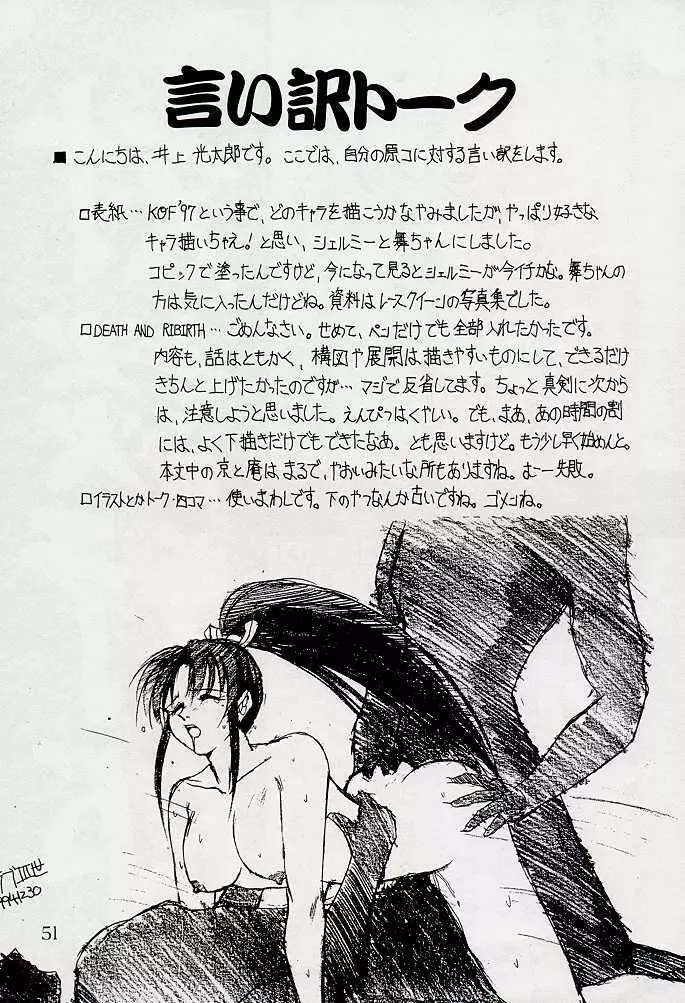 言い訳トーク
■ こんにちは、井上 光太郎です。ここでは、自分の原コに対する言い訳をします。
□表紙… KOF'97という事で、どのキャラを描こうかなやみましたが、やっぱり好きな
キャラ描いちゃえ!と思い、シェルミーと舞ちゃんにしました。
コピックで塗ったんですけど、今になって見るとシェルミーが今イチかな。舞ちゃんの
方は気に入ったんだけどね。資料はレースクイーンの写真集でした。
□DEATH AND RIBIRTH… ごめんなさい。せめて、ペンだけでも全部入れたかったです。
内容も、話はともかく、構図や展開は描きやすいものにして、できるだけ
きちんと上げたかったのですが… マジで反省してます。ちょっと真剣に次から
は、注意しようと思いました。えんぴつはくやしい。でも、まあ、あの時間の割
には、よく下描きだけでもできたなあ。とも思いますけど。もう少し早く始めんと。
本文中の京と庵は、まるで、やおいみたいな所もありますね。むー失敗。
□イラストとかトーク・四コマ… 使いまわしです。下のやつなんか古いですね。ゴメンね。
51